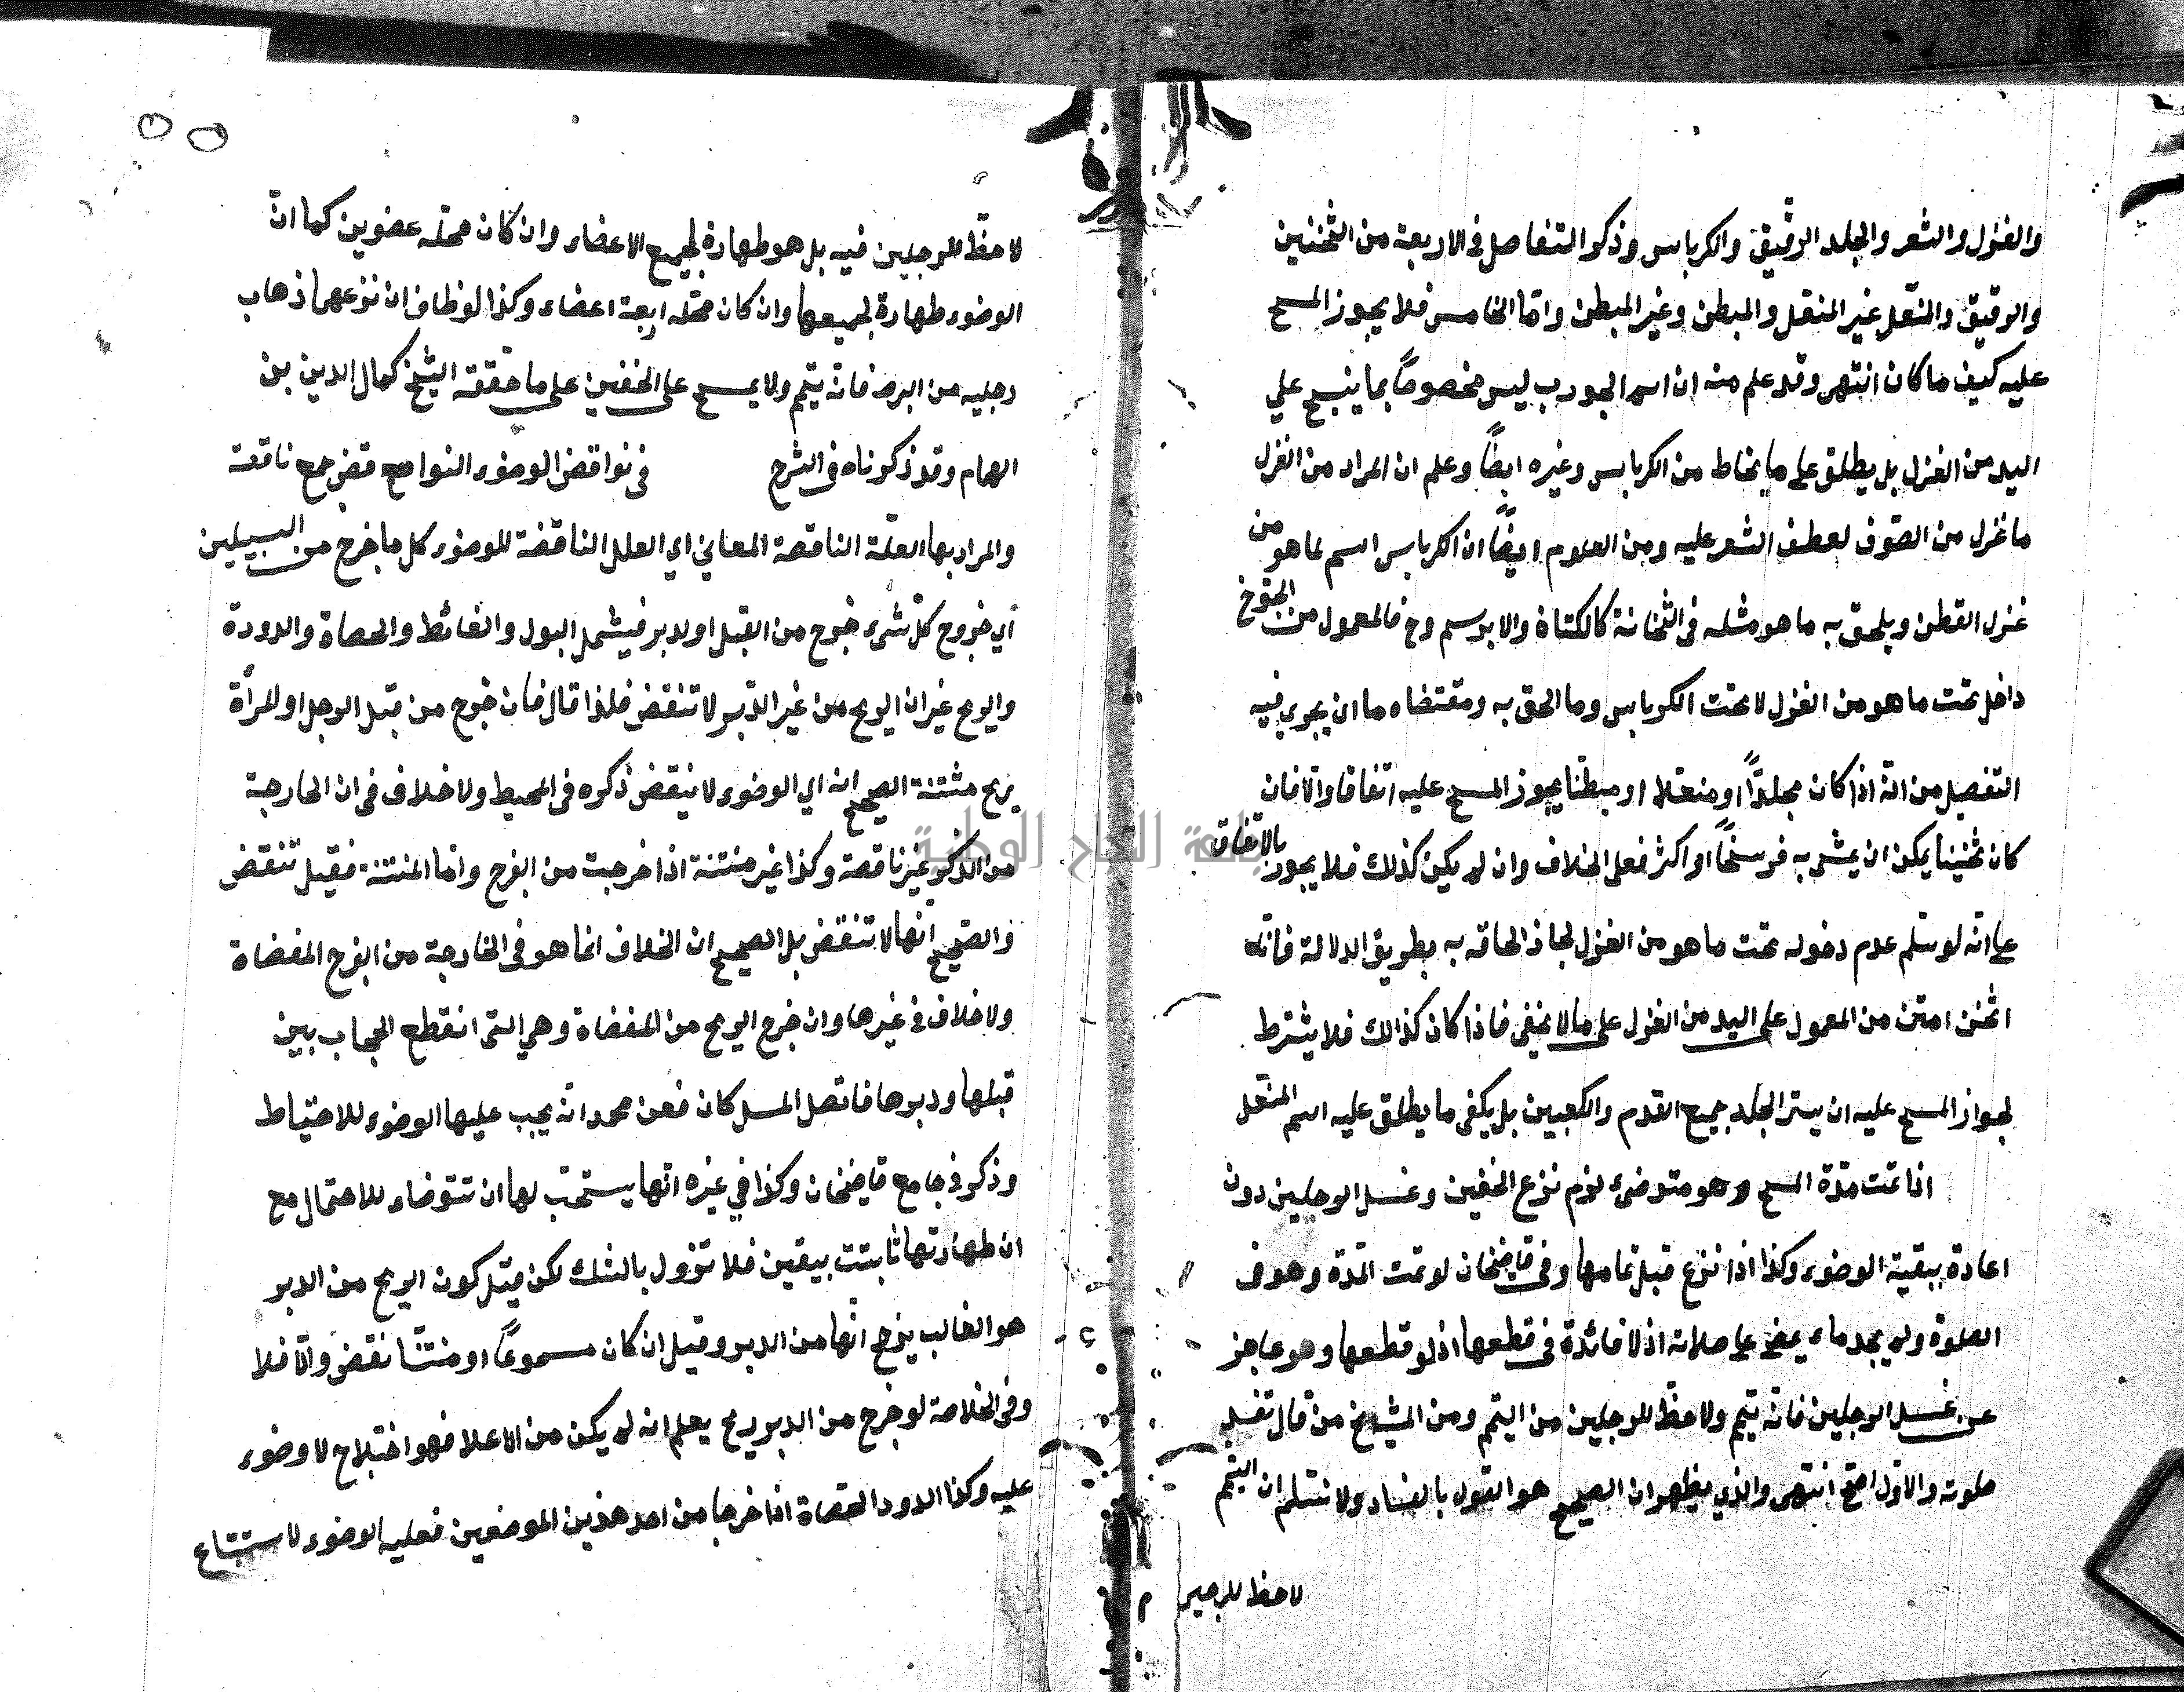 والغزل والشعر والجلد الرقيق والكرباس وذكر التفاصل في الاربعة من الثخنين
والرقيق والمنعّل غير المنعل والمبطن وغير المبطن واما الخامس فلا يجوز المسح
عليه كيف ما كان انتهى وقد علم منه ان اسم الجورب ليس مخصوصاً بما ينسج علي
اليد من الغزل بل يطلق على ما يخاط من الكرباس وغيره ايضاً وعلم ان المراد من الغزل
ما غزل من الصوف لعطف الشعر عليه ومن المعلوم ايضاً ان الكرباس اسم لما هو من
غزل القطن ويلحق به ما هو مثله في الثخانة كالكتان والابريسم وح فالمعمول من الجوخ
داخل تحت ما هو من الغزل لا تحت الكرباس وما الحق به ومقتضاه ما ان يجري فيه
التفصيل من انّه اذا كان مجلداً او منعلا او مبطنا يجوز المسح عليه اتفاقا والا فان
كان ثخينا يمكن ان يمشى به فرسخاً او اكثر فعلى الخلاف وان لم يكن كذلك فلا يجوز بالاتفاق
على انّه لو سلم عدم دخوله تحت ما هو من الغزل لجاز الحاقه به بطريق الدلالة فانه
اثخن امتن من المعمول على اليد من الغزل على ما لا يخفى فاذا كان كذالك فلا يشترط
لجواز المسح عليه ان يستر الجلد جميع القدم والكعبين بل يكفى ما يطلق عليه اسم المنعّل
اذا تمت مدّة المسح وهو متوضئ لزم نزع الخفين وغسل الرجلين دون
اعادة بقية الوضوء وكذا اذا نزع قبل تمامها وفى قاضيخان لو تمت المدة وهو في
الصلوة ولم يجد ماء يمضى على صلاته اذ لا فائدة فى قطعها اذ لو قطعها وهو عاجز
عن غسل الرجلين فانه يتيم ولا حظّ للرجلين من التيمم ومن المشايخ من قال تفسد
صلوته والاوّل اصح انتهى والذي يظهر ان الصحيح هو القول بالفساد ولا نسلم ان التيمم
لا حظ للرجلين
لا حظّ للرجلين فيه بل هو طهارة لجميع الاعضاء وان كان محله عضوين كما انّ
الوضوء طهارة لجميعها وان كان محله اربعة اعضاء وكذا لو خاف ان نزعهما ذهاب
رجليه من البرد فانه يتيم ولا يمسح على الخفين على ما حققه الشيخ كمال الدين بن
الهمام وقد ذكرناه فى الشرح في نواقض الوضوء النواقض جمع ناقضة
والمراد بها العلّة الناقضة المعاني اي العلل الناقضة للوضوء كل ما خرج من السبيلين
أي خروج كلّ شىء خرج من القبل او لدبر فيشمل البول والغائط والحصاة والدودة
والريح غير ان الريح من غير الدّبر لا تنقض فلذا قال فان خرج من قبل الرجل او المرأة
ريح منتنة الصحيح انه اي الوضوء لا ينقض ذكره فى المحيط ولا خلاف فى ان الخارجة
من الذكر غير ناقضة وكذا غير منتنة اذا خرجت من الفرج واما المنتنة فقيل تنقض
والصّحيح انها لا تنقض بل الصحيح ان الخلاف انما هو فى الخارجة من الفرج المفضاة
ولا خلاف في غيرها وان خرج الريح من المفضاة وهي التى انقطع الحجاب بين
قبلها ودبرها فاتصل المسلكان فعن محمد انه يجب عليها الوضوء للاحتياط
وذكر في جامع قاضيخان وكذا في غيره انّها يستحبّ لها ان تتوضاء للاحتمال مع
ان طهارتها ثابتت بيقين فلا تزول بالشك لكن قيل كون الريح من الدبر
هو الغالب يرجح انّها من الدبر وقيل ان كان مسموعاً او منتنّا نقض والا فلا
وفى الخلاصة لو خرج من الدبر ريح يعلم انه لم يكن من الاعلا فهو اختلاج لا وضوء
عليه وكذا الدود الحصاة اذا خرجا من احد هذين الموضعين فعليه الوضوء لاستتباع
جامعة النجاح الوطنية